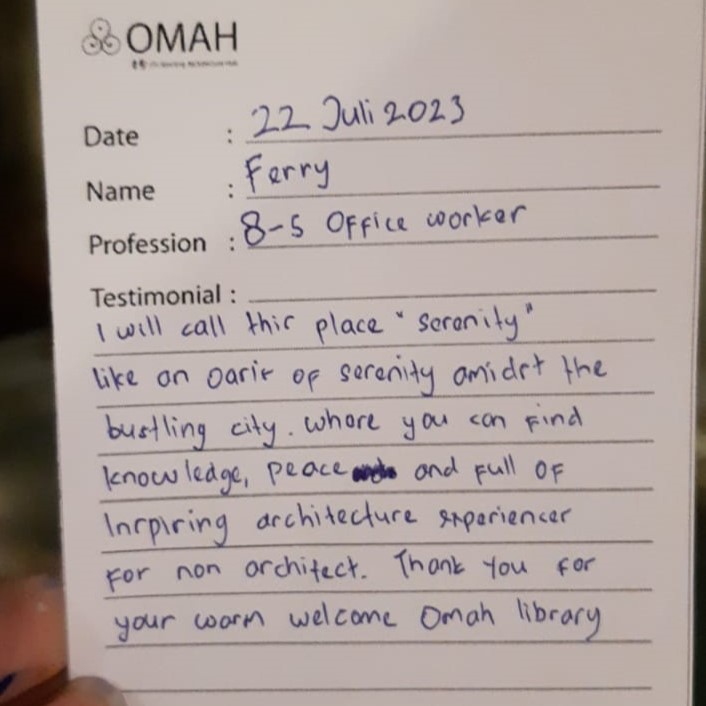 OMAH
Date : 22 Juli 2023
Name : Ferry
Profession : 8-5 Office worker
Testimonial :
I will call this place "serenity"
like an oasis of serenity amidst the
bustling city. where you can find
knowledge, peace and full of
Inspiring architecture experiences
for non architect. Thank you for
your warm welcome Omah library